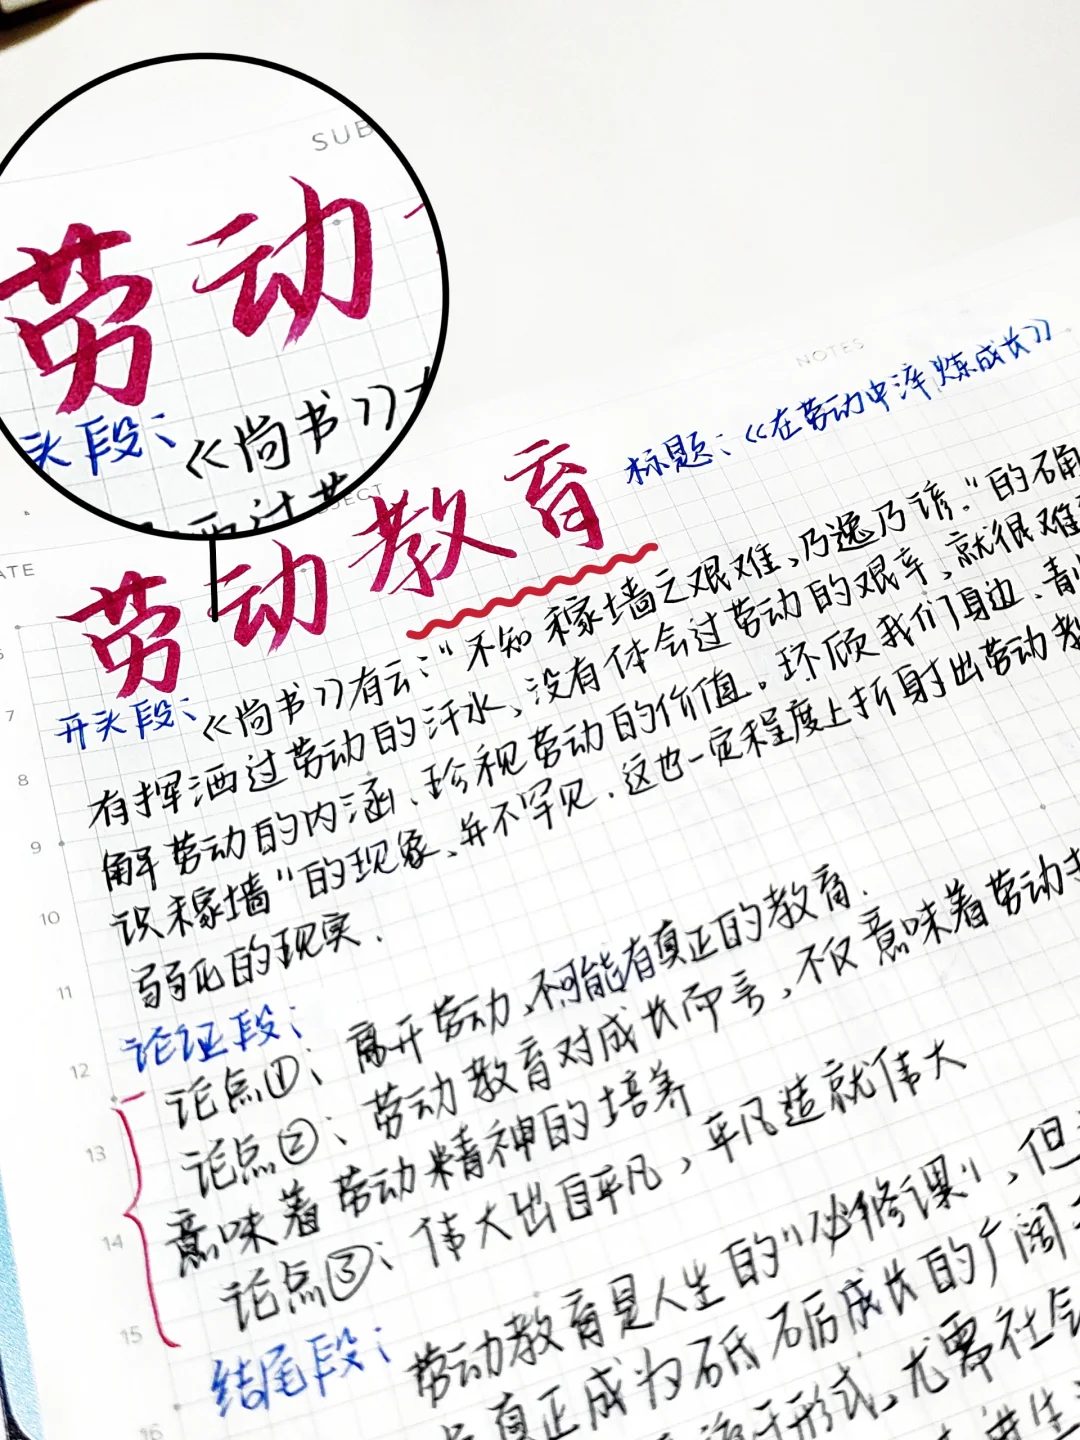 SUB
劳动
头段：《尚书》
NOTES
标题：《在劳动中淬炼成长》
JECT
ATE
劳动教育
开头段：《尚书》有云："不知稼墙之艰难、乃逸乃谚."的确
有挥洒过劳动的汗水、没有体会过劳动的艰辛、就很难
解劳动的内涵、珍视劳动的价值。环顾我们身边、青
识稼墙"的现象、并不罕见.这也一定程度上折射出劳动教
弱化的现实.
论证段：
论点①：离开劳动,不可能有真正的教育.
论点②：劳动教育对成长而言,不仅意味着劳动
意味着劳动精神的培养
论点③：伟大出自平凡,平凡造就伟大
结尾段：劳动教育是人生的"必修课",但
真正成为砥砺成长的广阔
于形式,尤需社会
进生
6
7
8
9
10
11
12
13
14
15
16